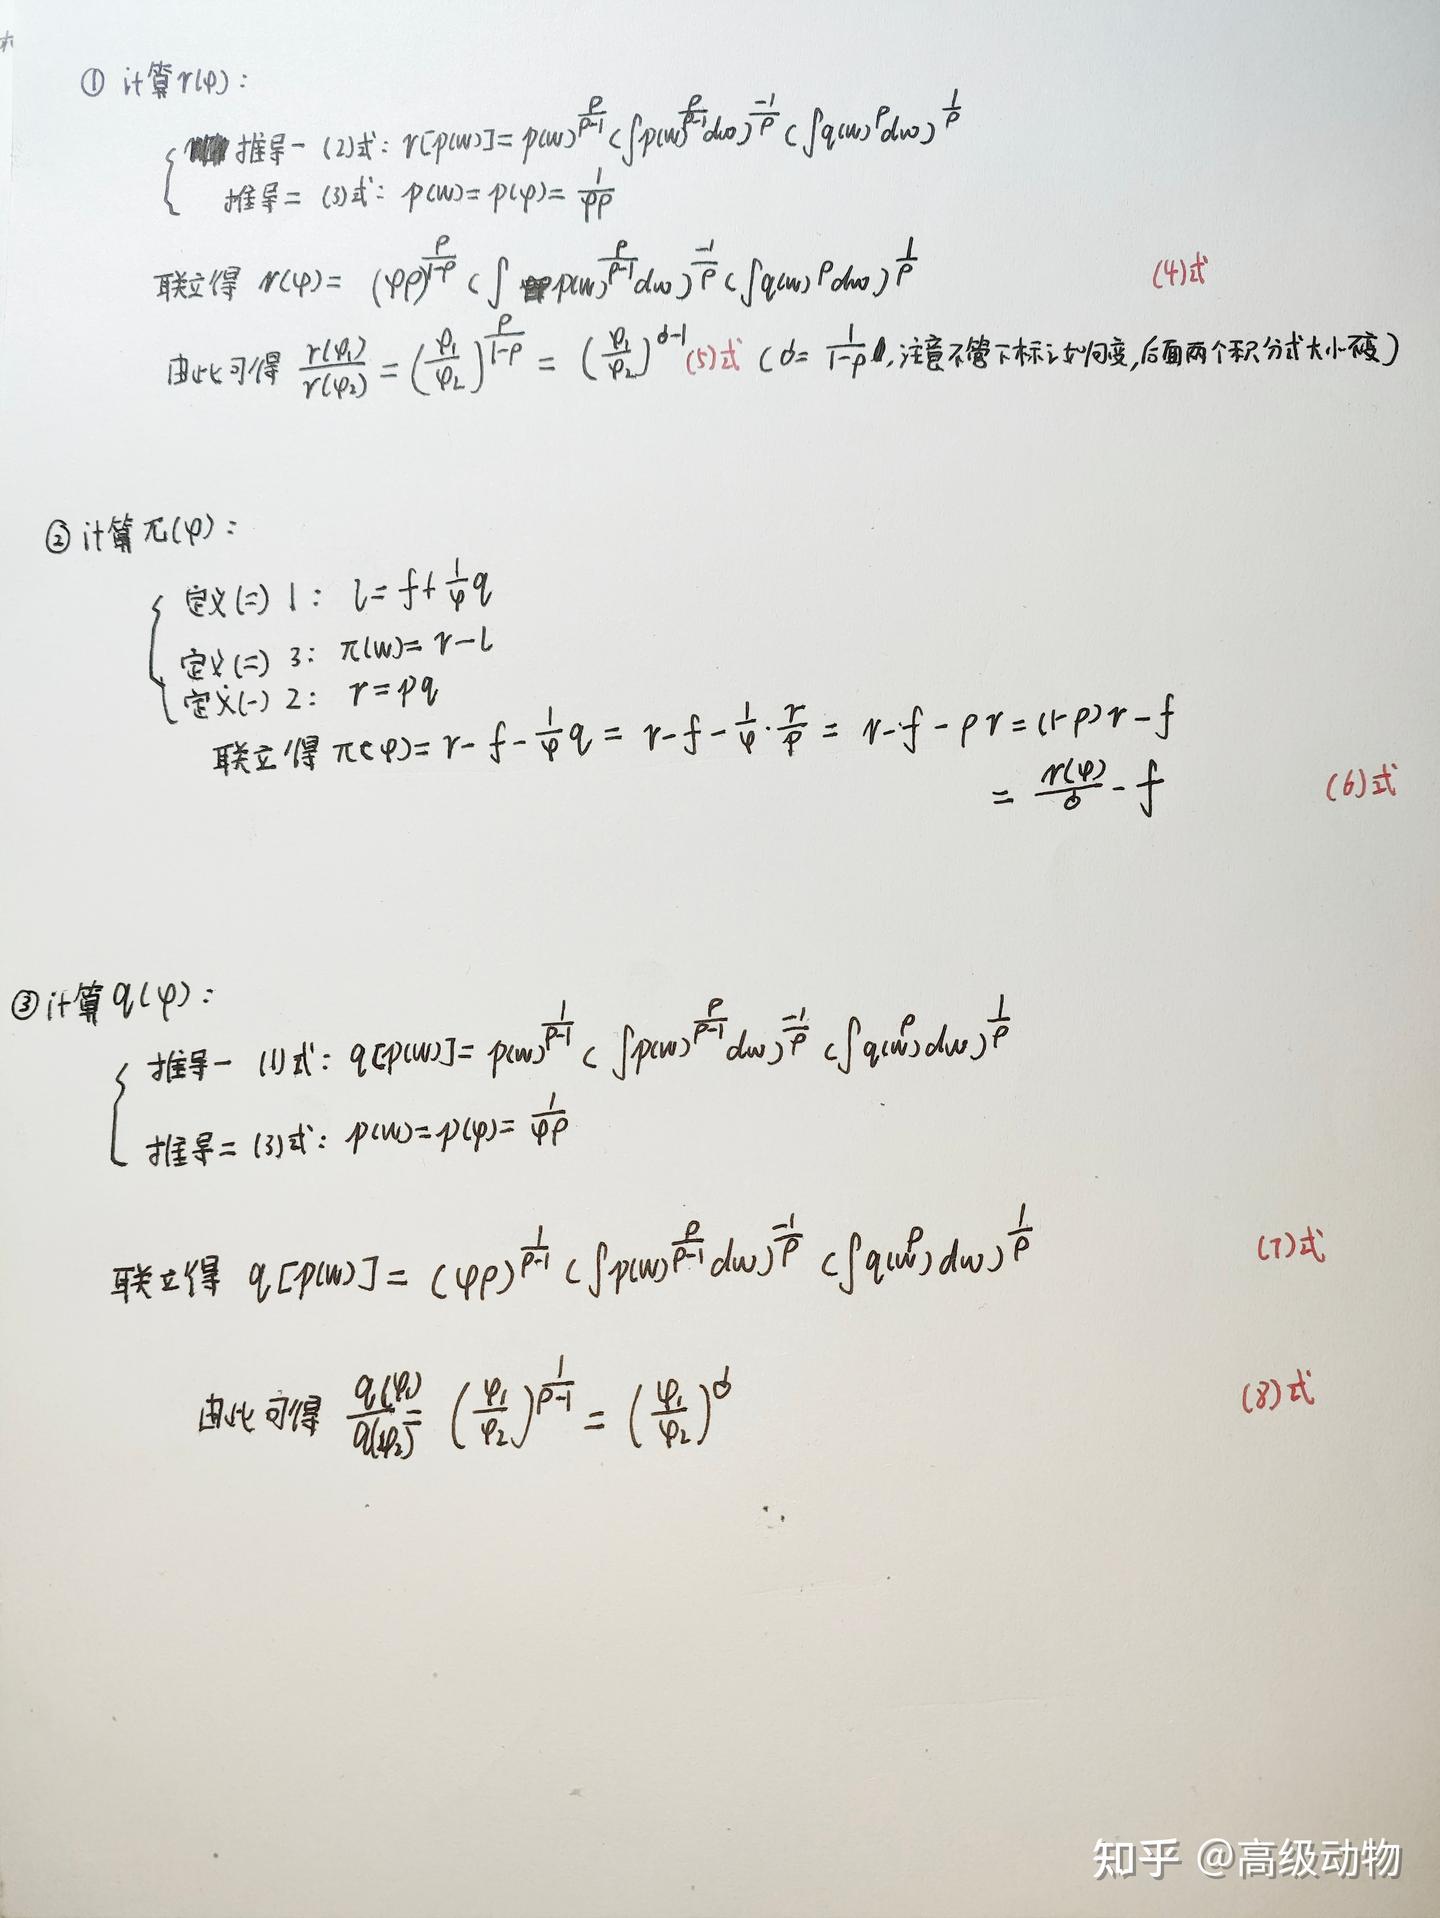 ① 计算r(φ):
推导一 (2)式: r[p(w)] = p(w)^{ρ/(ρ-1)} (∫p(w)^{ρ/(ρ-1)}dw)^{-1/ρ} (∫q(w)^ρ dw)^{1/ρ}
推导二 (3)式: p(w) = p(φ) = 1/(φρ)
联立得 r(φ) = (φρ)^{ρ/(1-ρ)} (∫p(w)^{ρ/(ρ-1)}dw)^{-1/ρ} (∫q(w)^ρ dw)^{1/ρ} (4)式
由此可得 r(φ₁)/r(φ₂) = (φ₁/φ₂)^{ρ/(1-ρ)} = (φ₁/φ₂)^{σ-1} (5)式 (σ = 1/(1-ρ), 注意不管下标i如何变, 后面两个积分式大小不变)
② 计算π(φ):
定义(二) 1: l = f + (1/φ)q
定义(二) 3: π(w) = r - l
定义(一) 2: r = pq
联立得 π(φ) = r - f - (1/φ)q = r - f - (1/φ)·(r/p) = r - f - ρr = (1-ρ)r - f
= r(φ)/σ - f (6)式
③ 计算q(φ):
推导一 (1)式: q[p(w)] = p(w)^{1/(ρ-1)} (∫p(w)^{ρ/(ρ-1)}dw)^{-1/ρ} (∫q(w)^ρ dw)^{1/ρ}
推导二 (3)式: p(w) = p(φ) = 1/(φρ)
联立得 q[p(w)] = (φρ)^{1/(ρ-1)} (∫p(w)^{ρ/(ρ-1)}dw)^{-1/ρ} (∫q(w)^ρ dw)^{1/ρ} (7)式
由此可得 q(φ₁)/q(φ₂) = (φ₁/φ₂)^{1/(ρ-1)} = (φ₁/φ₂)^σ (8)式
知乎 @高级动物